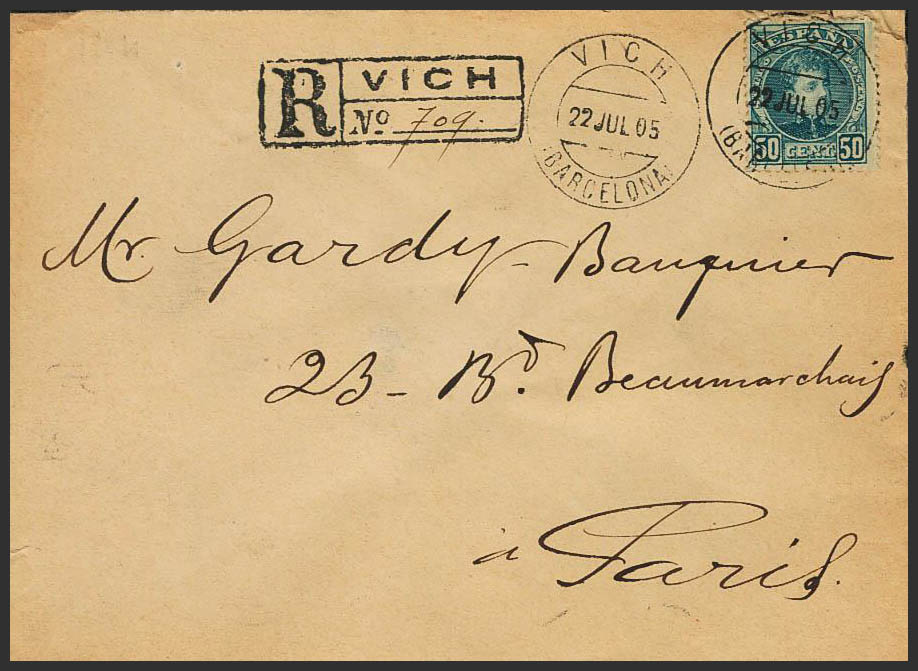 R VICH
Nº 709.
VICH
22 JUL 05
(BARCELONA)
ESPAÑA
VICH
22 JUL 05
(BARCELONA)
50 CENT 50
Mr. Gardy - Banquier
23 - Bd. Beaumarchais
à Paris.